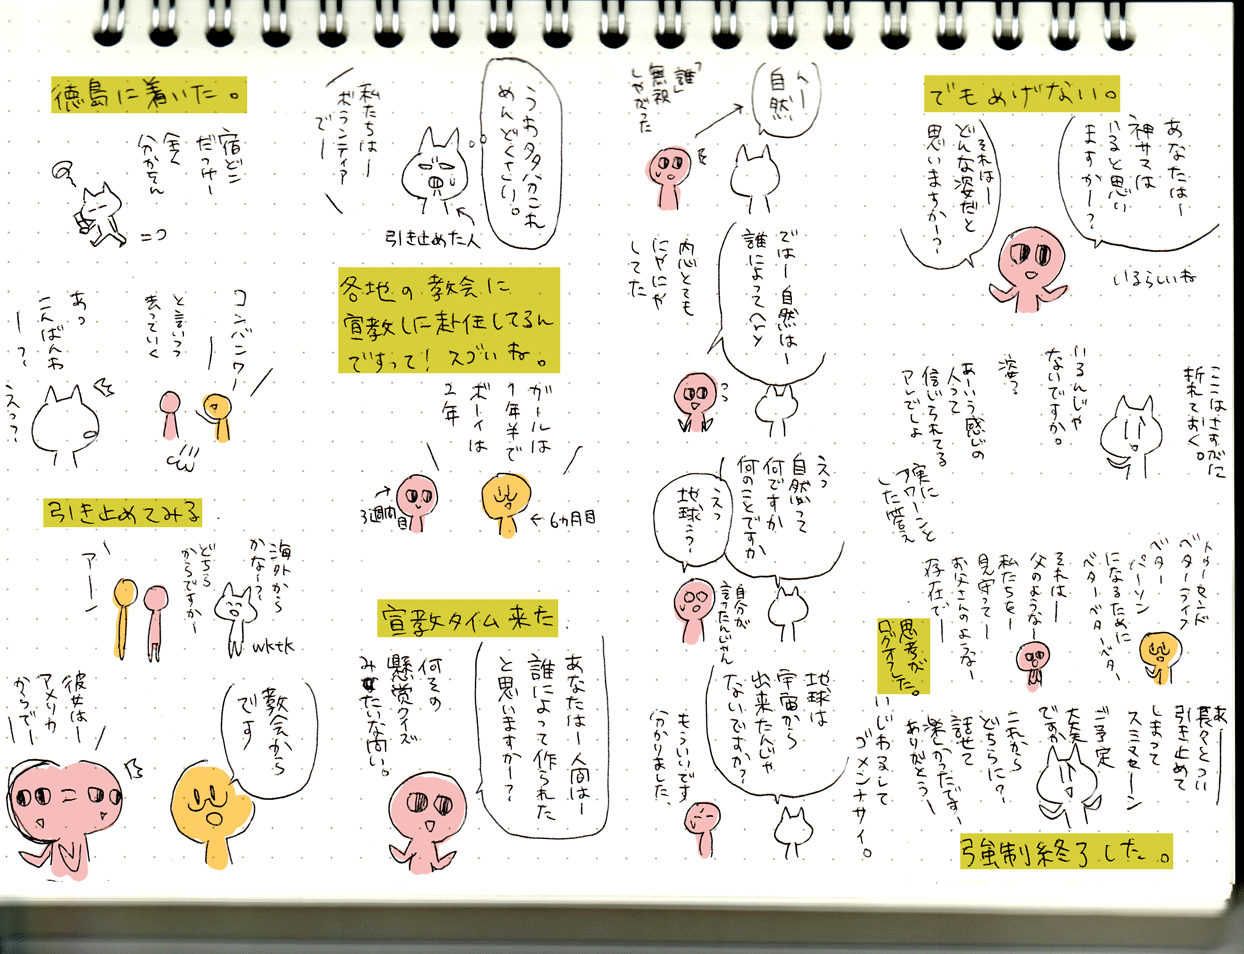 徳島に着いた。
宿どこ
だっけー
全く
分からん
コンバンワー
と言いつつ
去っていく
あっ
こんばんわ
ー？
えっ？
引き止めてみる
アーン
海外から
かな〜？
どちら
からですかー
wktk
教会から
です
彼女は〜
アメリカ
からでー
うわ多分これ
めんどくさい。
私たちはー
ボランティア
でー
引き止めた人
各地の教会に
宣教しに赴任してるん
ですって！スゴいね。
ガールは
1年半で
ボーイは
2年
3週間目
6カ月目
宣教タイム来た
あなたはー人間はー
誰によって作られた
と思いますかー？
何その
懸賞クイズ
みたいな問い。
んー
自然
「誰」
無視
しやがった
ではー自然はー
誰によってへÞ
内心とても
にやにや
してた
えっ
自然って
何ですか
何のことですか
えっ
地球う？
自分が
言ったんじゃん
地球は
宇宙から
出来たんじゃ
ないですか？
もういいです
分かりました、
いじわるして
ゴメンナサイ。
でもめげない。
あなたはー
神サマは
いると思い
ますかー？
それはー
どんな姿だと
思いますかー？
いるらしいね
ここはさすがに
折れておく。
いるんじゃ
ないですか。
姿？
あーいう感じの
人って
信じられてる
アレでしょ
実に
フワーンと
した答え
トゥーセンド
ベターライフ
ベター
パーソン
になるために
ベターベーター、
それはー
父のようなー
私たちをー
見守ってー
お父さんのようなー
存在でー
思考が
ログオフした。
あー
長々とつい
引き止めて
しまって
スミマセーン
ご予定
大丈
ですか
これから
どちらに？
話せて
楽しかったですー、
ありがとうー
強制終了した。